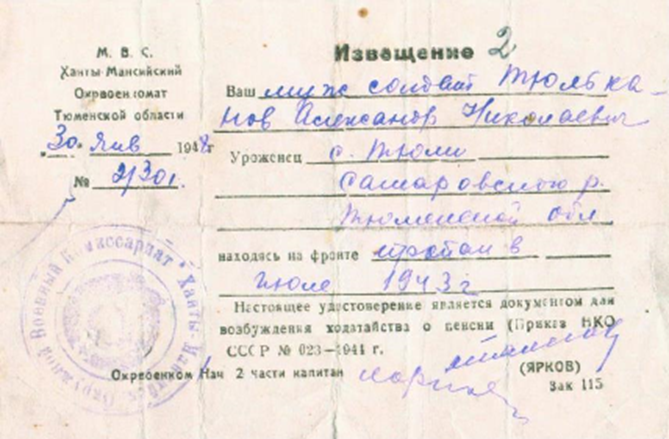 М. В. С.
Ханты-Мансийский
Окрвоенкомат
Тюменской области
"30" янв 1948г
№ 2/301.
Извещение 2
Ваш муж солдат Тюлька-
нов Александр Николаевич
Уроженец с. Тюли
Самаровского р.
Тюменской обл
находясь на фронте пропал в
июле 1943 г
Настоящее удостоверение является документом для
возбуждения ходатайства о пенсии (Приказ НКО
СССР № 023—1941 г.
Окрвоенком Нач 2 части капитан
(ЯРКОВ)
Зак 115
Окружной Военный Комиссариат * Ханты-